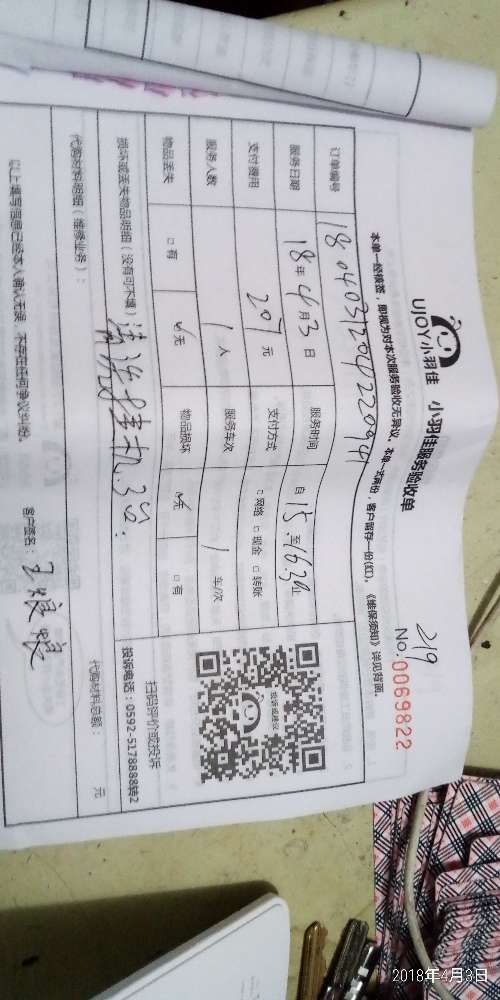 UJOY小羽佳 小羽佳服务验收单
219
NO:0069822
本单一经核签，即视为对本次服务验收无异议。本单一式两份，客户留存一份(红)。《维保须知》详见背面。
订单编号
服务日期 18年4月3日 服务时间 自15至16:30止
支付费用 207元 支付方式 □网络 □现金 □转账
服务人数 1人 服务车次 1车/次
物品丢失 □有 □无 物品损坏 □无 □有
损坏或丢失物品明细（没有可不填）
清洗挂机3台.
代购材料明细（维修业务）：
代购材料总额： 元
以上填写信息已经本人确认无误，不存在任何争议纠纷。
客户签名：
投诉或建议
扫码评价或投诉
投诉电话：0592-5178888转2
2018年4月3日